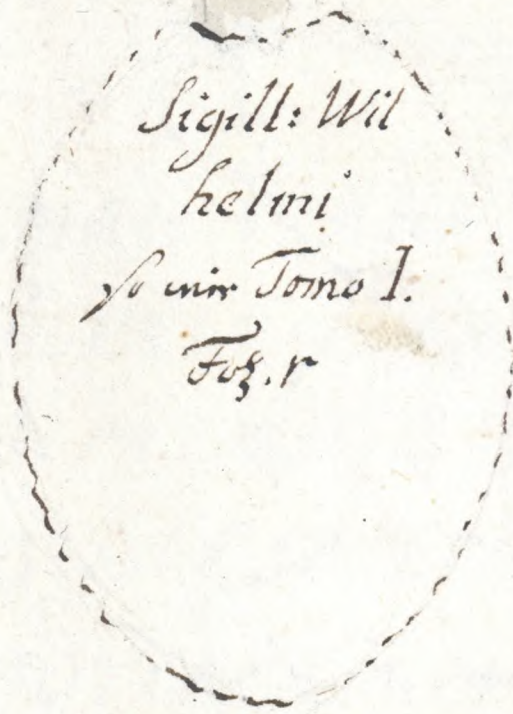 Sigill: Wil
helmi
so wir Tomo I.
Fol. r